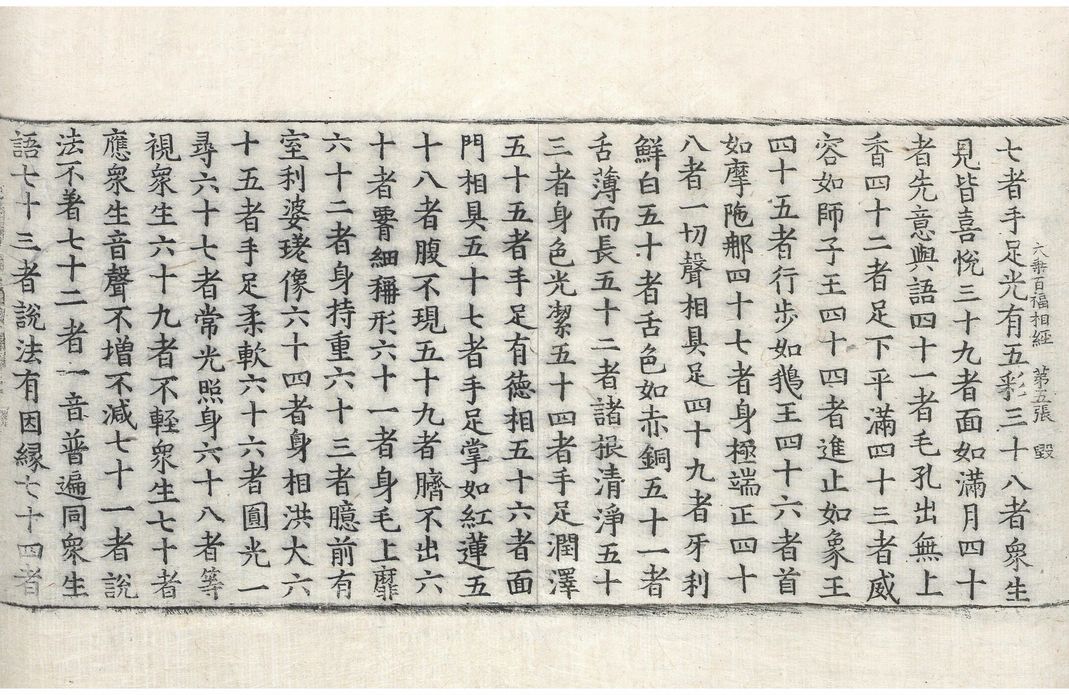 大乘百福相經 第五張 毀
七者手足光有五彩三十八者衆生
見皆喜悅三十九者面如滿月四十
者先意與語四十一者毛孔出無上
香四十二者足下平滿四十三者威
容如師子王四十四者進止如象王
四十五者行步如鵝王四十六者首
如摩陁郍四十七者身極端正四十
八者一切聲相具足四十九者牙利
鮮白五十者舌色如赤銅五十一者
舌薄而長五十二者諸根清淨五十
三者身色光潔五十四者手足潤澤
五十五者手足有德相五十六者面
門相具五十七者手足掌如紅蓮五
十八者腹不現五十九者臍不出六
十者腰細稱形六十一者身毛上靡
六十二者身持重六十三者臆前有
室利婆瑳像六十四者身相洪大六
十五者手足柔軟六十六者圓光一
尋六十七者常光照身六十八者等
視衆生六十九者不輕衆生七十者
應衆生音聲不增不減七十一者說
法不著七十二者一音普遍同衆生
語七十三者說法有因緣七十四者